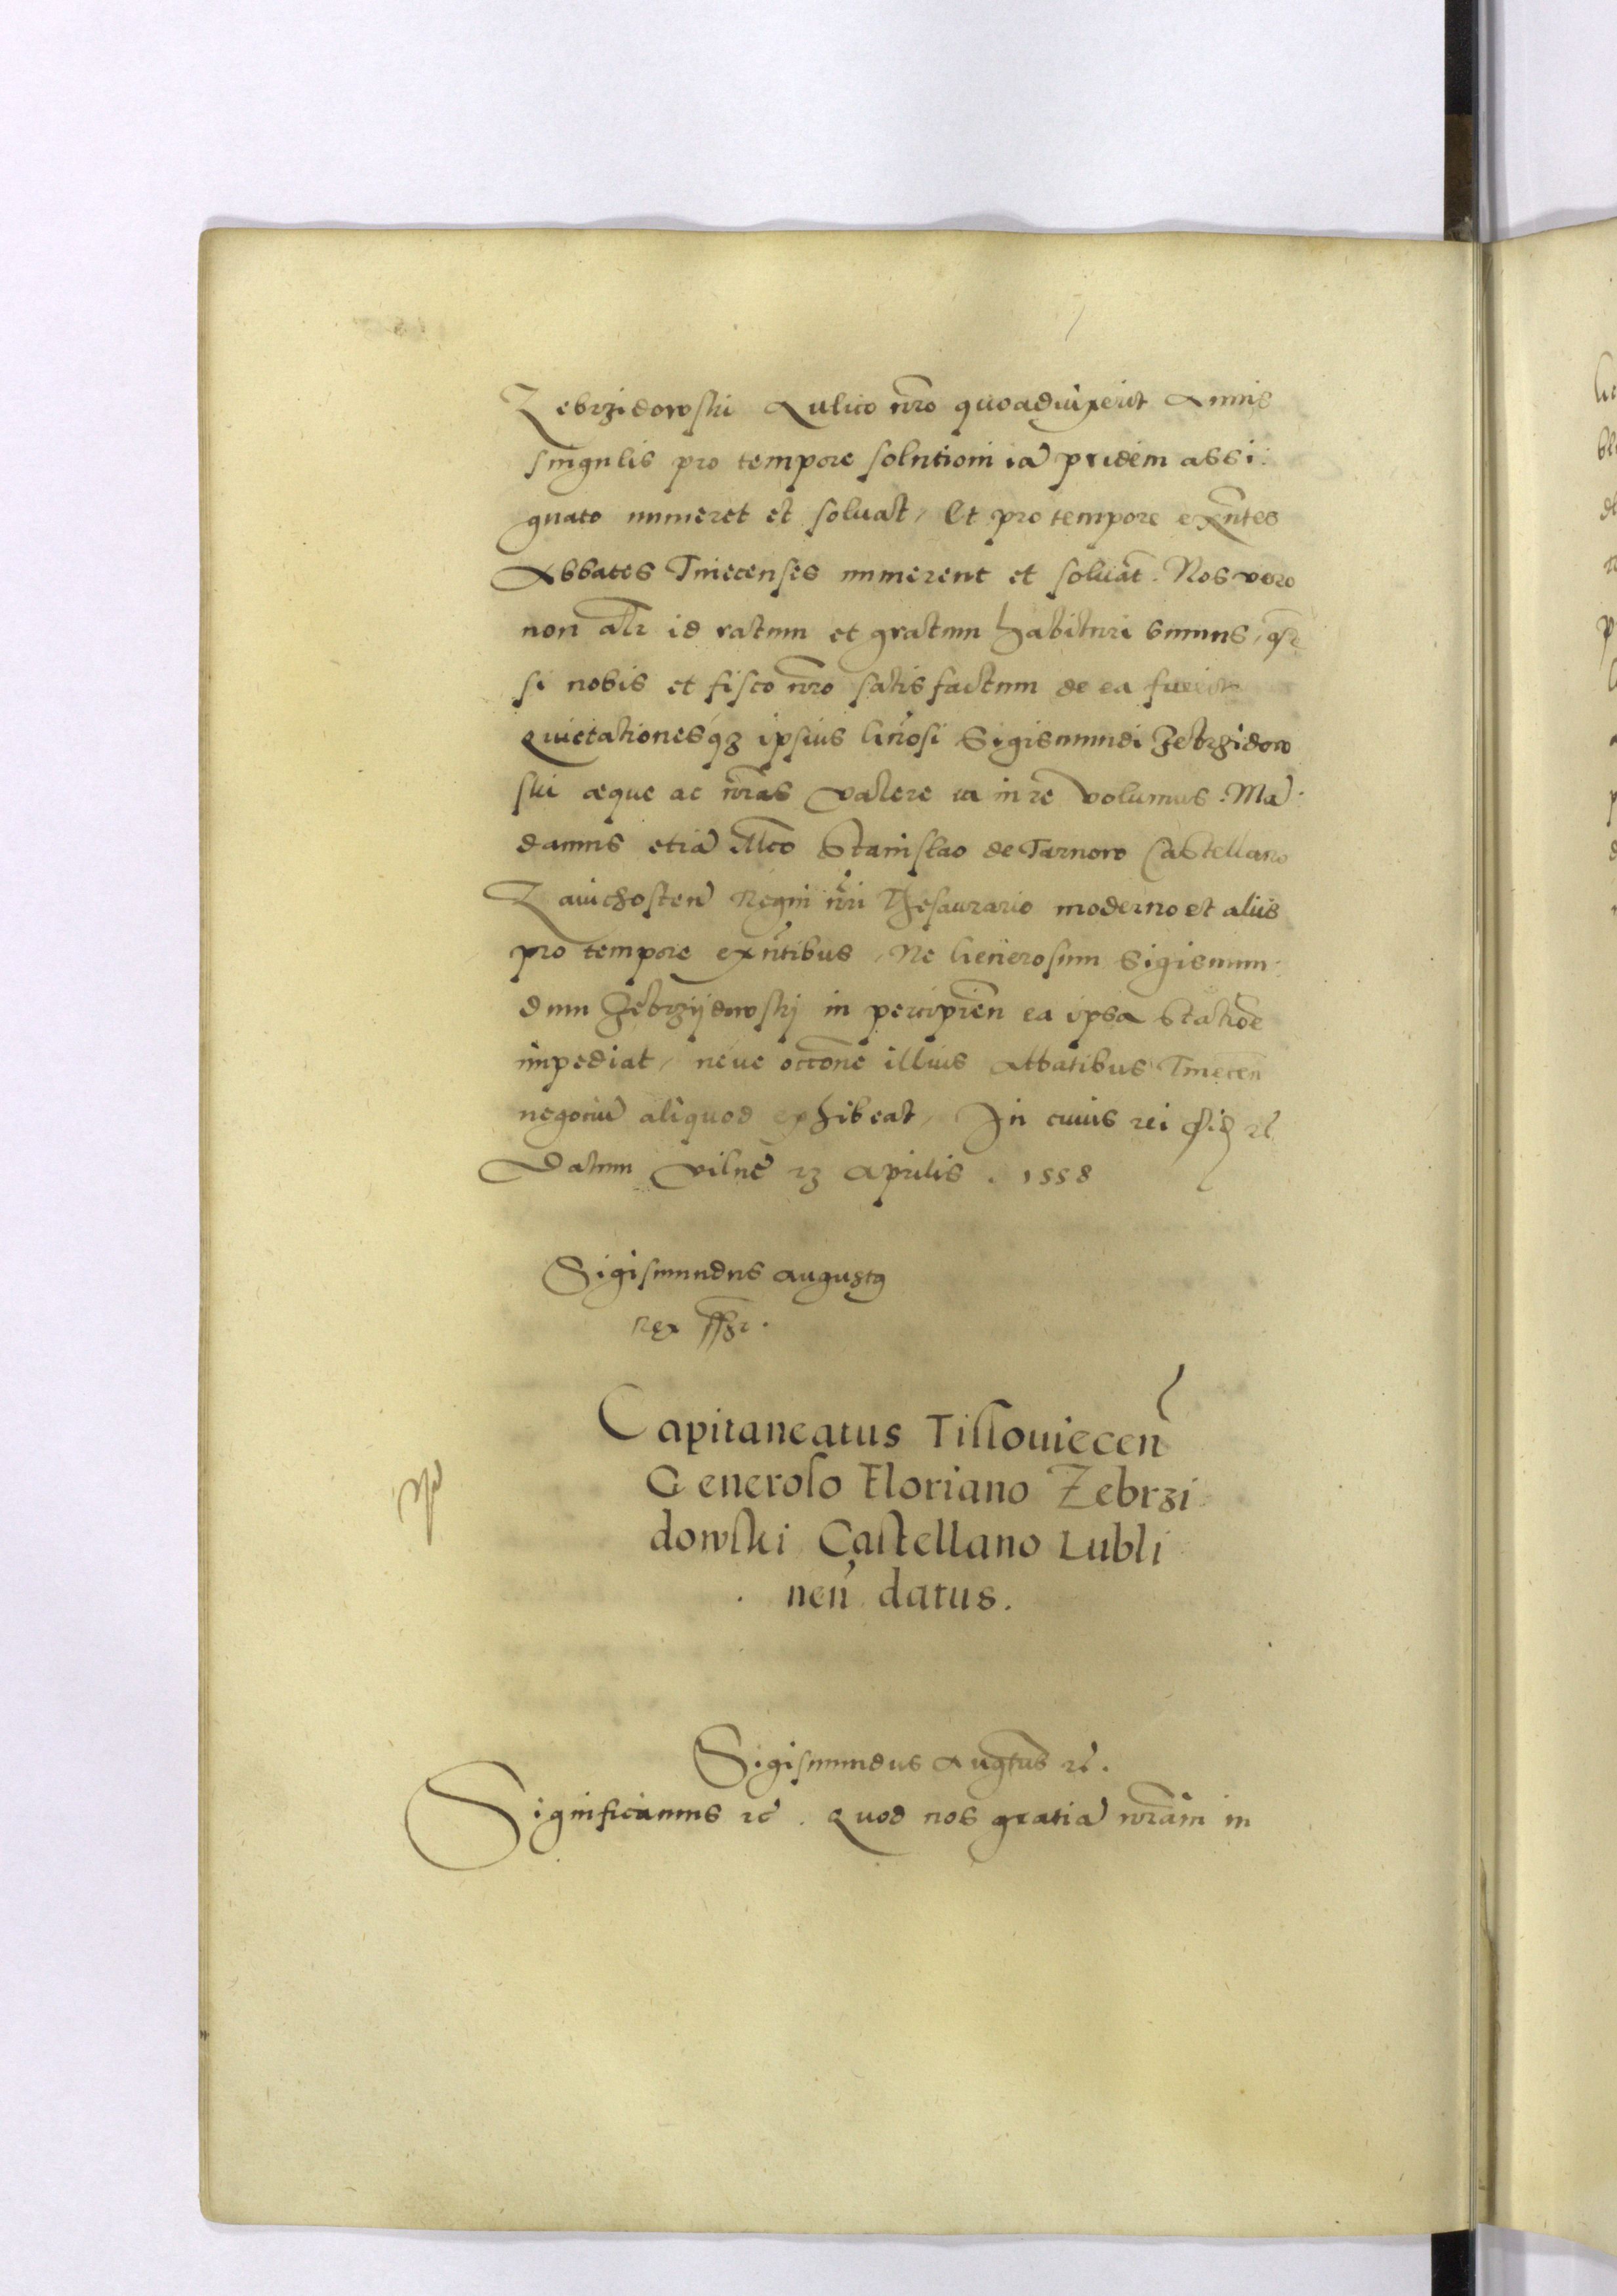 Zebrzidowski Aulico nr̃o quoaduixerit Annis
singulis pro tempore solutioni iā pridem assi:
gnato numeret et soluat, Et pro tempore exñtes
Abbates Tinecenses numerent et soluāt. Nos vero
non alr̃ id ratum et gratum habituri sumus, qr̃
si nobis et fisco nr̃o satisfactum de ea fuerit
Quietationesq3 ipsius Gn̄osi Sigismundi Zebrzidow
ski æque ac nr̃as valere ea in re volumus. Mā:
damus etiā Mco Stanislao de Tarnow Castellano
Zauichosten̄ Regni nr̃i Thesaurario moderno et aliis
pro tempore exñtibus, Ne Generosum Sigismun:
dum Zebrzijdowskj in percipien̄ ea ipsa Statiōe
impediat, neue occōne illius Abbatibus Tinecen̄
negociū aliquod exhibeat, In cuius rei fid̄ rc̄
Datum Vilnę 23 Aprilis . 1558
Sigismundus Augustq
Rex sszr.
Capitaneatus Tissouiecen̄
Generoso Floriano Zebrzi
dowski Castellano Lubli
nen̄ datus.
Sigismundus Augtus rc̄.
Significamus rc̄ . Quod nos gratiā nr̃am in